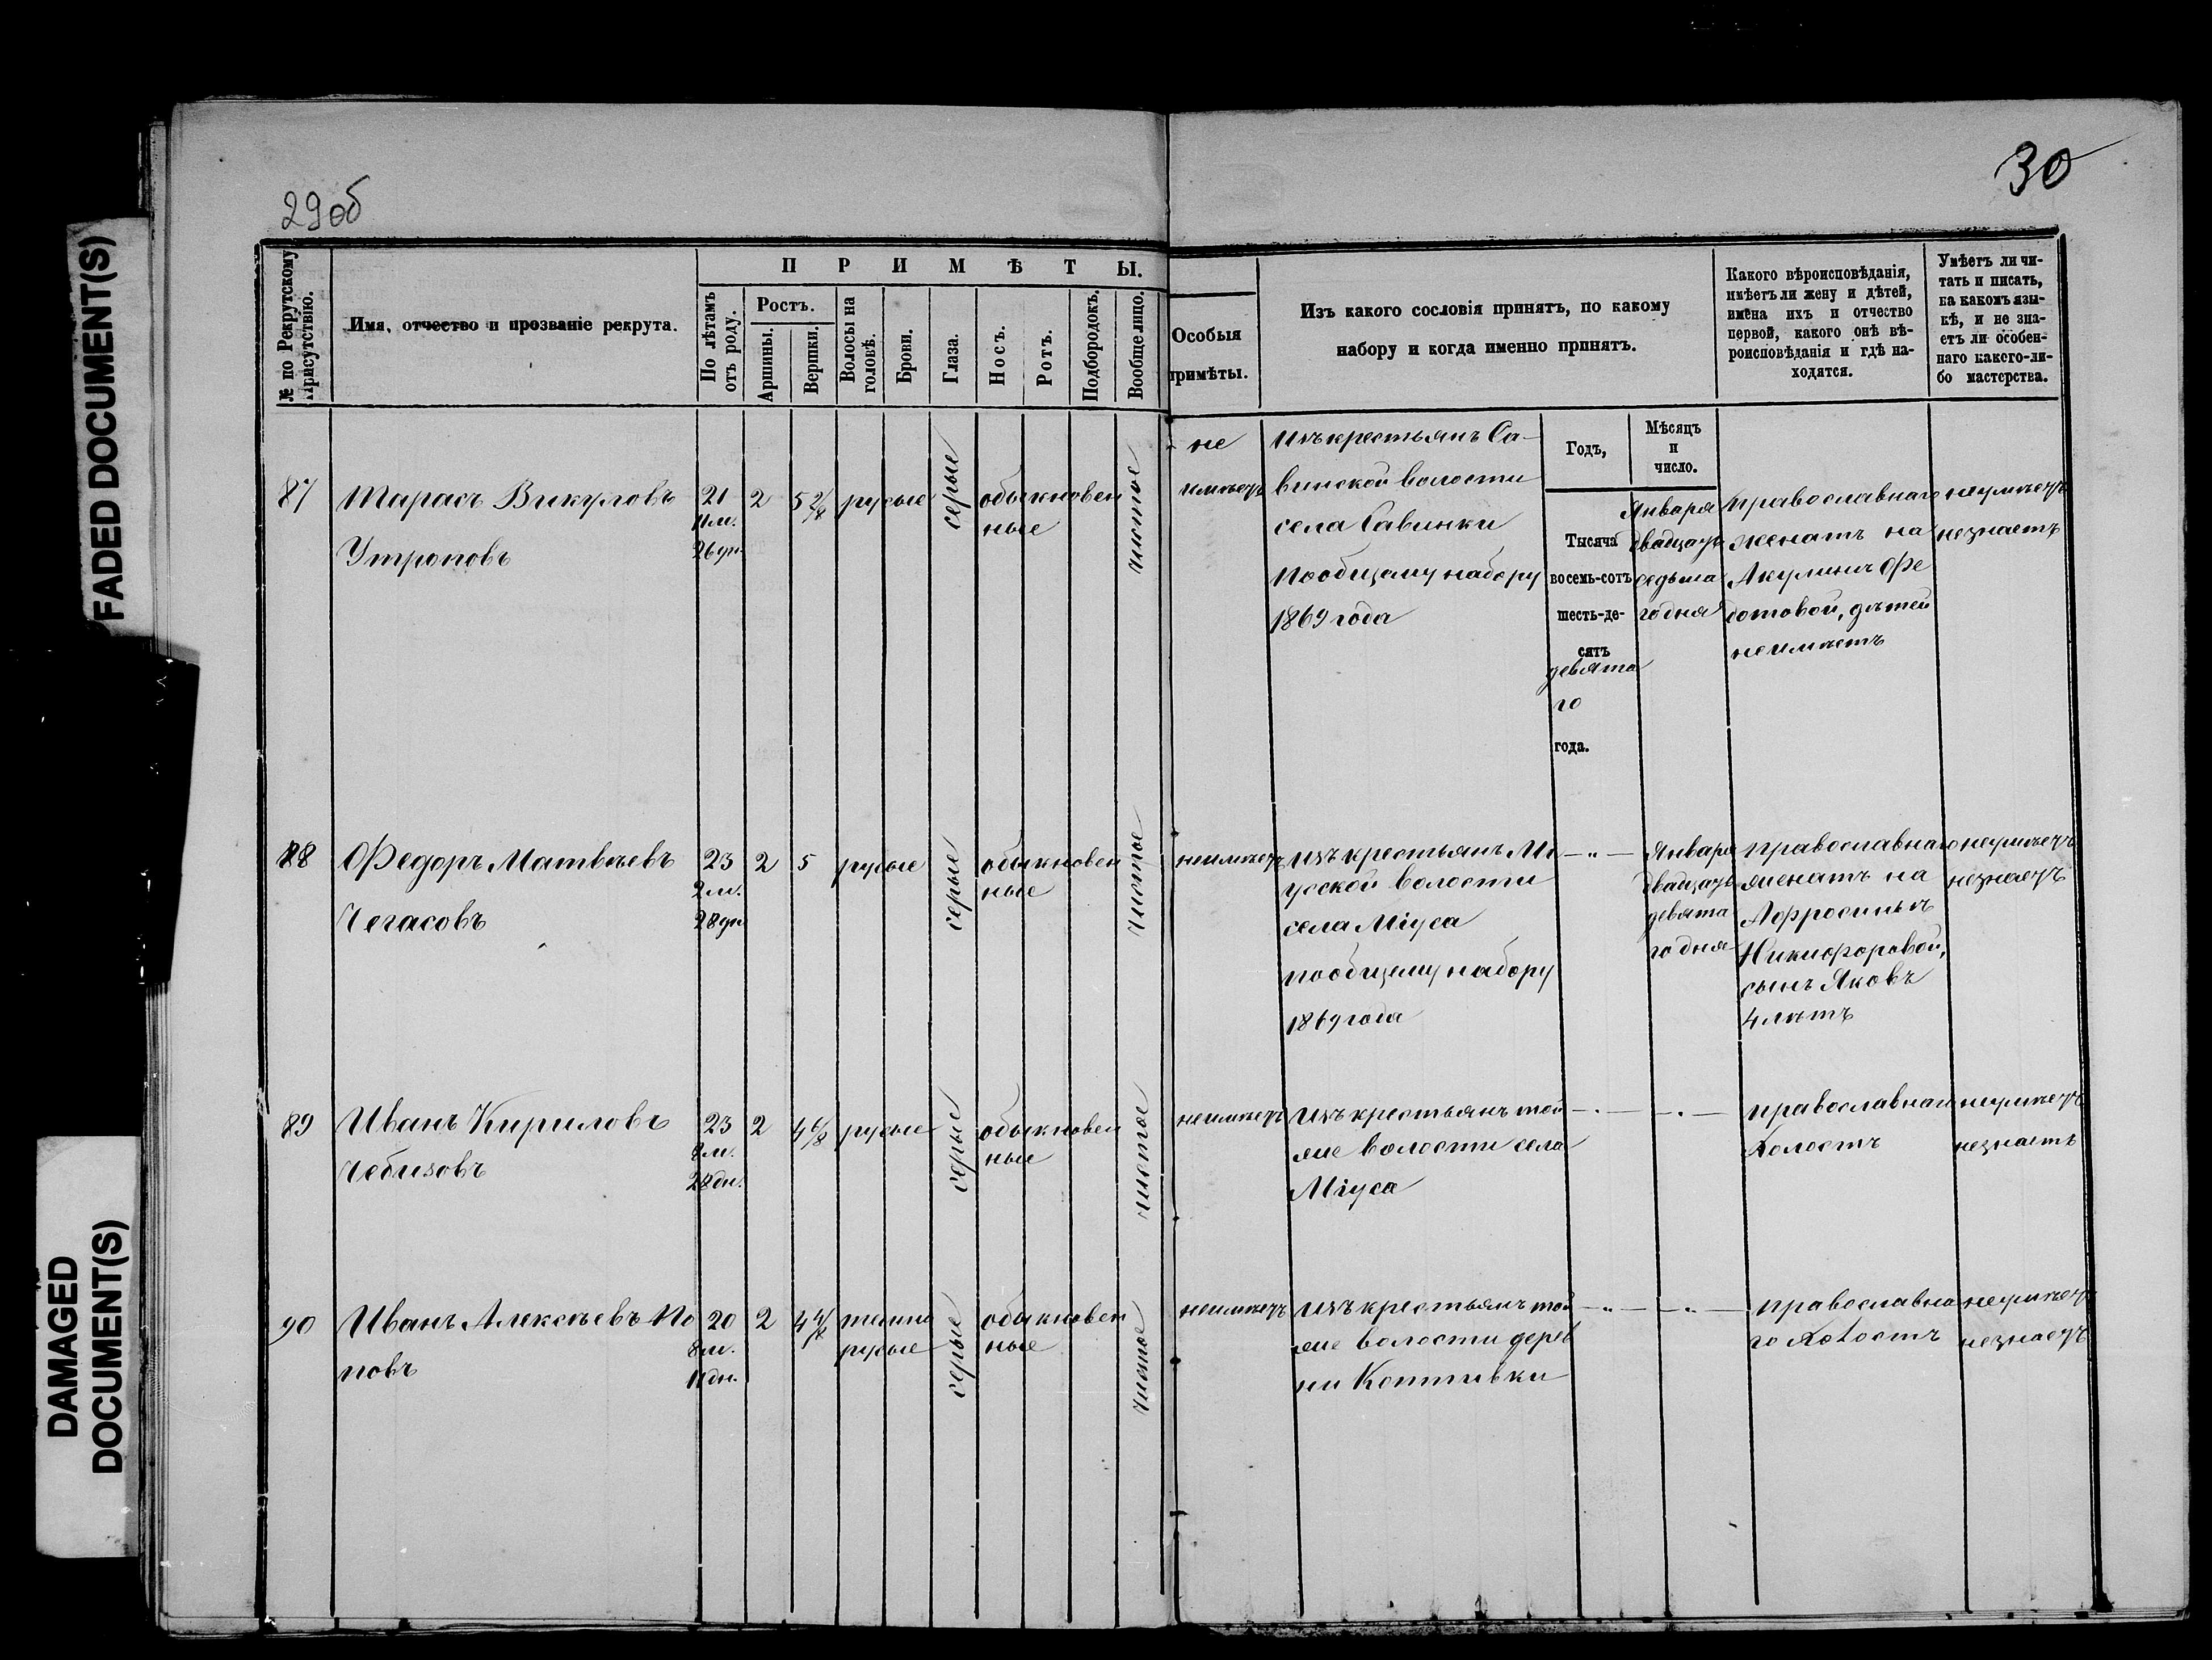 FADED DOCUMENT(S)
DAMAGED
DOCUMENT(S)
29об
30
№ по Рекрутскому
Присутствію.
Имя, отчество и прозваніе рекрута.
ПРИМѢТЫ.
По лѣтамъ
отъ роду.
Ростъ.
Аршины.
Вершки.
Волосы на
головѣ.
Брови.
Глаза.
Носъ.
Ротъ.
Подбородокъ.
Вообще лицо.
Особыя
примѣты.
Изъ какого сословія принятъ, по какому
набору и когда именно принятъ.
Какого вѣроисповѣданія,
имѣетъ ли жену и дѣтей,
имена ихъ и отчество
первой, какого онѣ вѣ-
роисповѣданія и гдѣ на-
ходятся.
Умѣетъ ли чи-
тать и писать,
на какомъ язы-
кѣ, и не зна-
етъ ли особен-
наго какого-ли-
бо мастерства.
Годъ,
Мѣсяцъ
и
число.
87
Тарасъ Викуловъ
Утроповъ
21
11м.
26дн.
2
5 2/8
русые
серые
обыкновен
ные
чистое
не
имѣетъ
Изъ крестьянъ Са-
винской волости
села Савинки
по общему набору
1869 года
Тысяча
восемь-сотъ
шесть-де-
сятъ
девята
го
года.
Января
двадцать
седьма
го дня
православнаго
женатъ на
Акулинѣ Фе
дотовой, дѣтей
неимѣетъ
неумѣетъ
незнаетъ
88
Федоръ Матвѣевъ
Чегасовъ
23
2м.
28дн
2
5
русые
серые
обыкновен
ные
чистое
неимѣетъ
изъ крестьянъ Мі
усской волости
села Міуса
по общему набору
1869 года
— „ —
Января
двадцать
девята
го дня
православнаго
женатъ на
Афросиньѣ
Никифоровой,
сынъ Яковъ
4 лѣтъ
неумѣетъ
незнаетъ
89
Иванъ Кириловъ
Чебизовъ
23
8м.
28дн.
2
4 6/8
русые
серые
обыкновен
ные
чистое
неимѣетъ
Изъ крестьянъ той
же волости села
Міуса
— „ —
— „ —
православнаго
Холостъ
неумѣетъ
незнаетъ
90
Иванъ Алексѣевъ По
повъ
20
8м.
11дн.
2
4 4/8
темно
русые
серые
обыкновен
ные
чистое
неимѣетъ
Изъ крестьянъ той
же волости дерев
ни Коптивки
— „ —
— „ —
православна
го Холостъ
неумѣетъ
незнаетъ